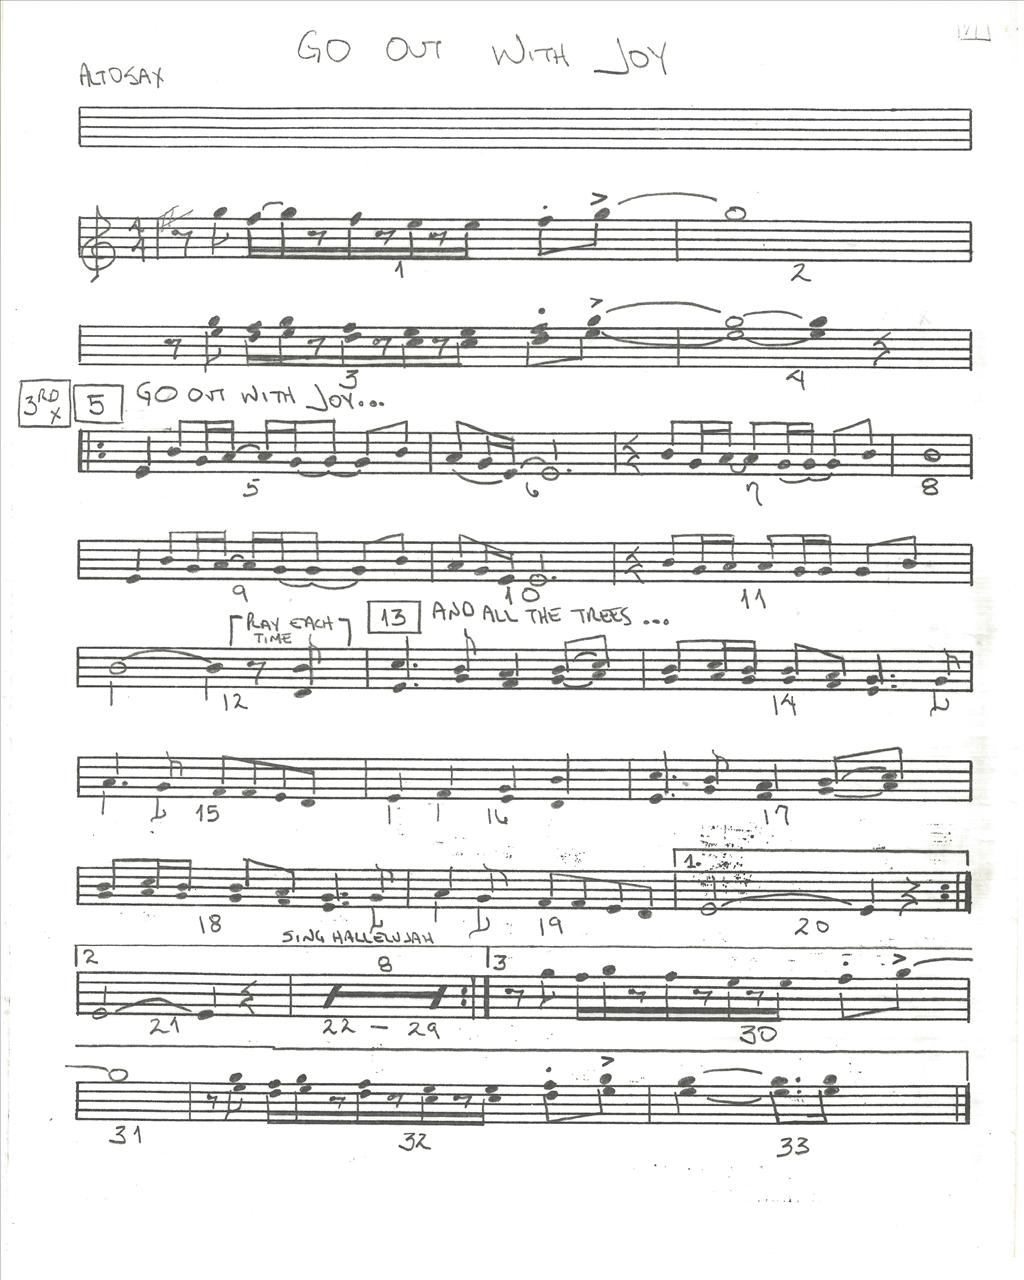 GO OUT WITH JOY
ALTO SAX
4
4
1 2
3 4
3RD X 5 GO OUT WITH JOY...
5 6 7 8
9 10 11
PLAY EACH TIME 13 AND ALL THE TREES...
12 14
15 16 17
1.
18 19 20
SING HALLELUJAH
2 8 3
21 22 - 29 30
31 32 33